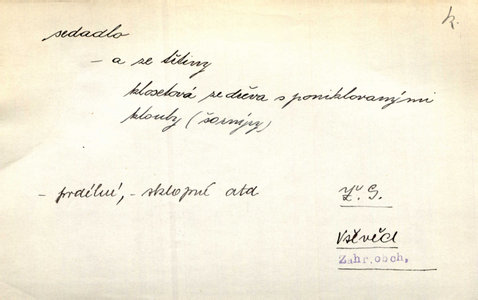 k.
sedadlo
- a ze třtiny
klosetová ze dřeva s poniklovanými
klouby (šarnýry)
- prdělní, - sklopné atd
Ž. G.
Vševěd
Zahr. obch,